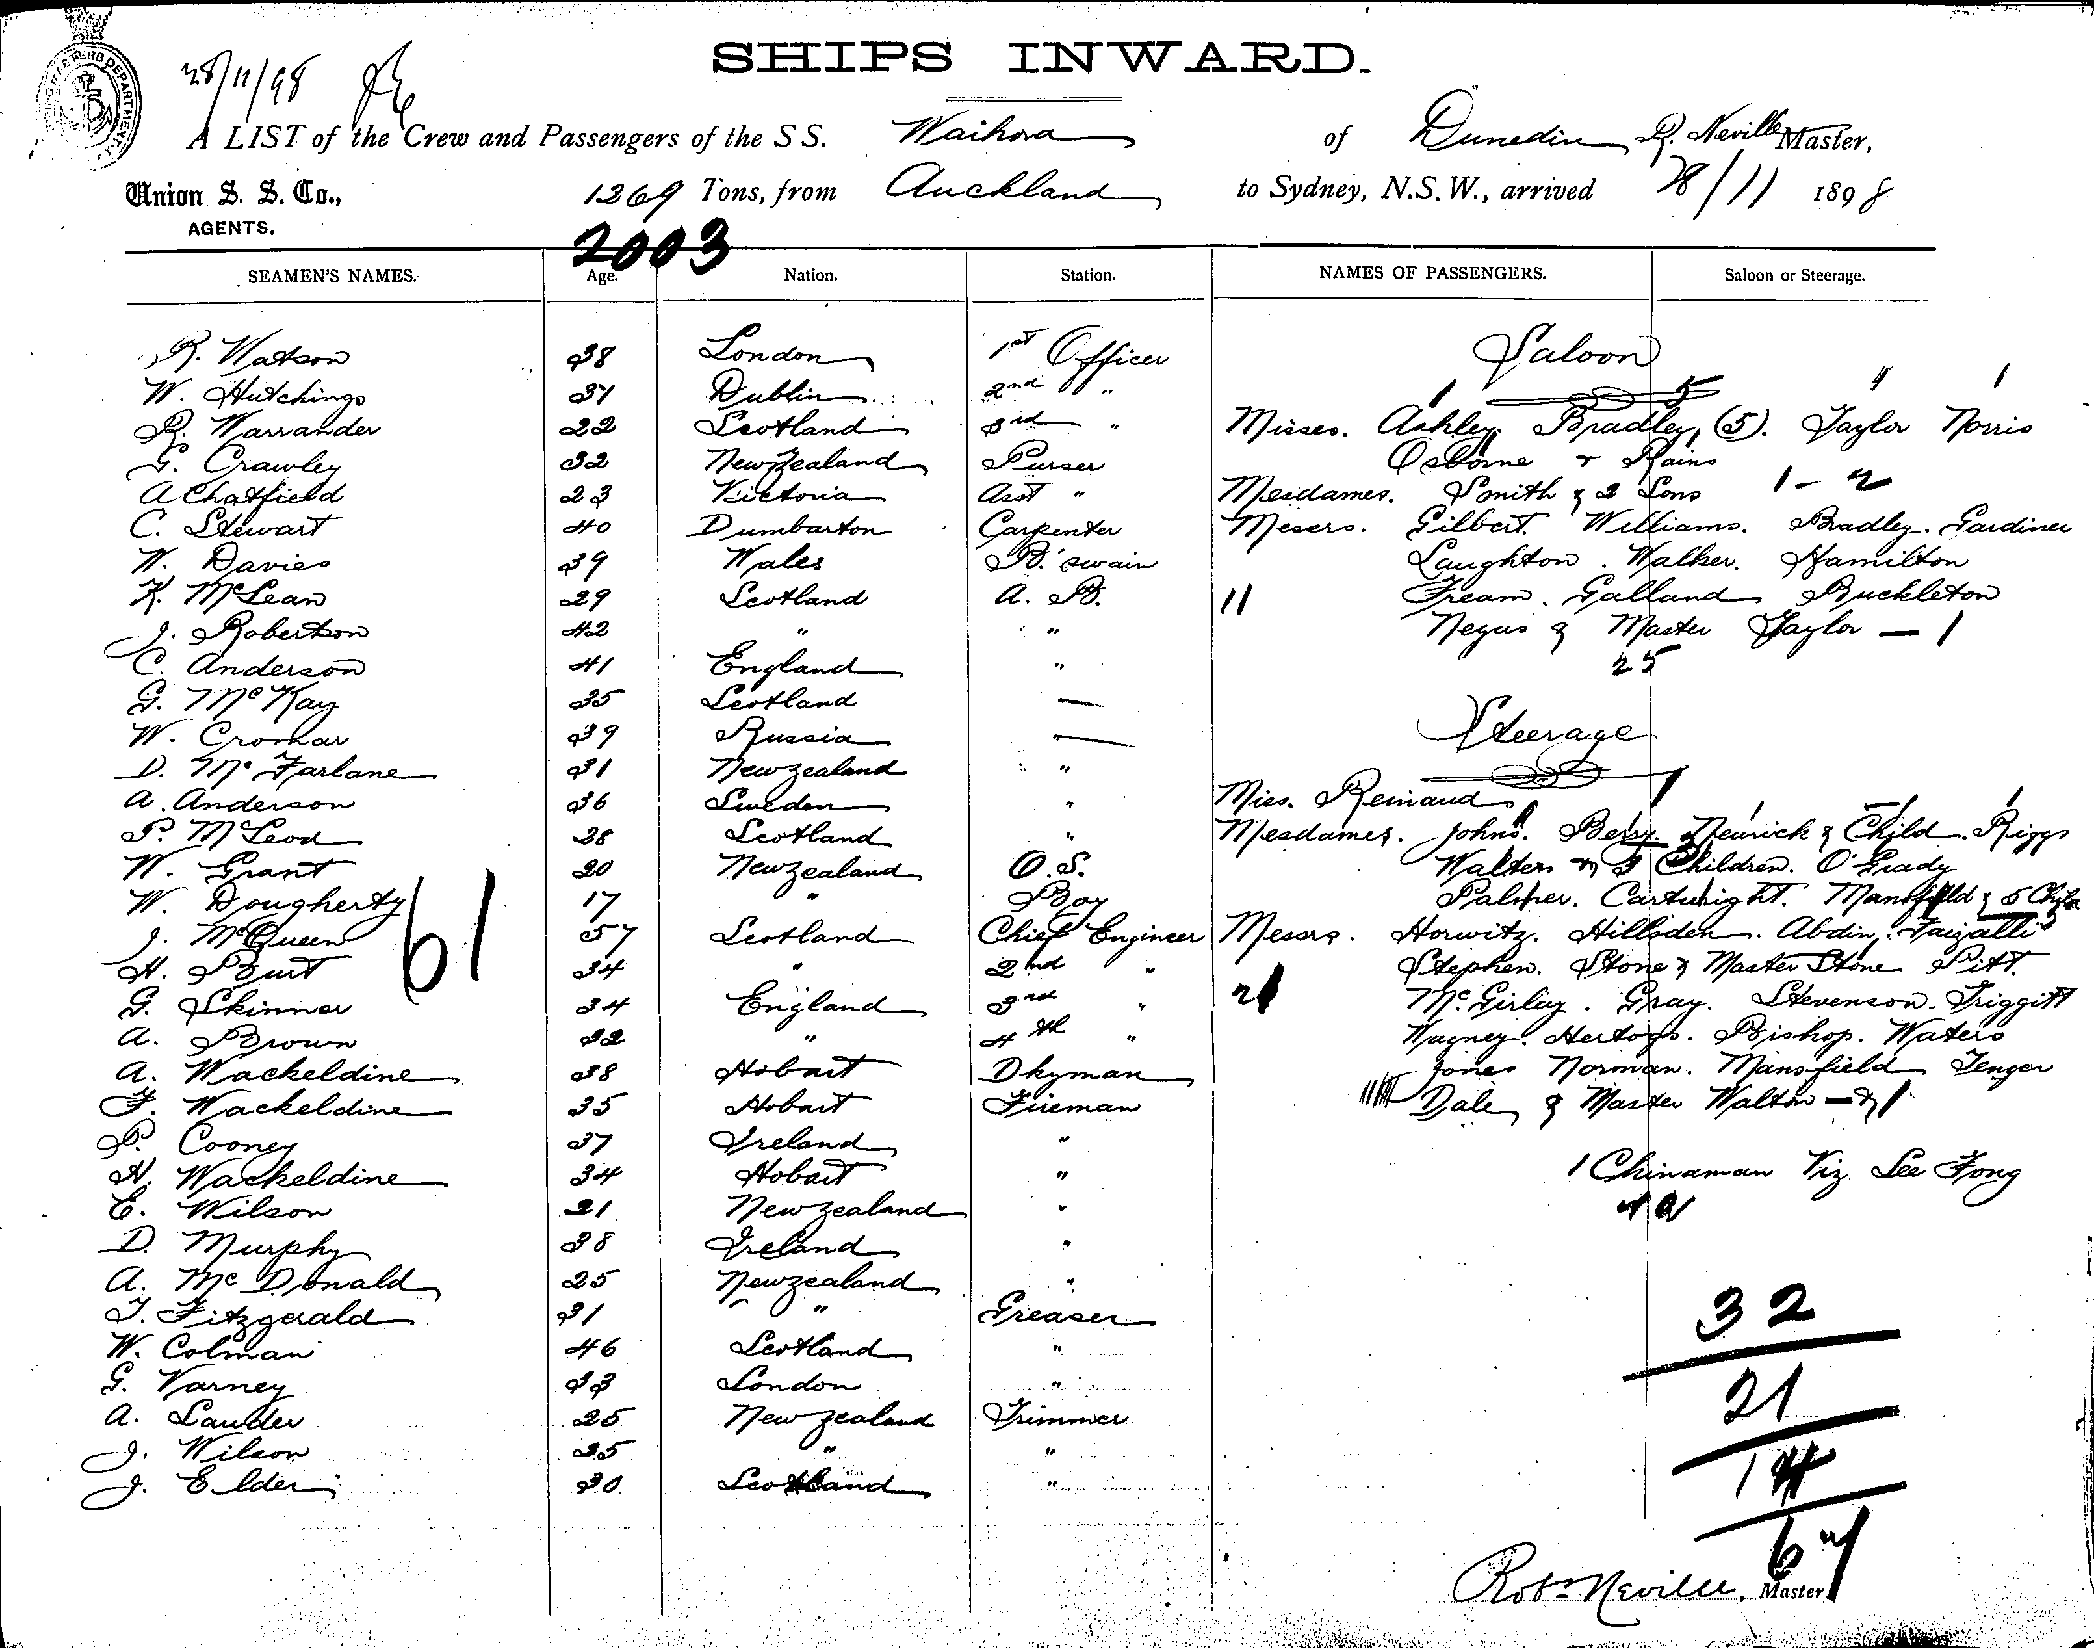 SHIPS INWARD.
28/11/98
A LIST of the Crew and Passengers of the SS. Waihora of Dunedin R. Neville Master,
Union S. S. Co., 1269 Tons, from Auckland to Sydney, N.S.W., arrived 28/11 1898
AGENTS.
2003
SEAMEN'S NAMES. Age. Nation. Station. NAMES OF PASSENGERS. Saloon or Steerage.
R. Watson 38 London 1st Officer Saloon
W. Hutchings 31 Dublin 2nd "
R. Warrander 22 Scotland 3rd " Misses. Ashley Bradley, (5). Taylor Norris
G. Crawley 32 New Zealand Purser Osborne & Rains
A Chatfield 23 Victoria Asst " Mesdames. Smith & 2 Sons 1 - 2
C. Stewart 40 Dumbarton Carpenter Messrs. Gilbert. Williams. Bradley. Gardiner
W. Davies 39 Wales B'swain Laughton. Walker. Hamilton
K. McLean 29 Scotland A. B. 11 Fream. Galland Buckleton
J. Robertson 42 " " Negus & Master Taylor — 1
C. Anderson 41 England " 25
G. McKay 35 Scotland —
W. Cromar 39 Russia — Steerage
D. McFarlane 31 New zealand "
A. Anderson 36 Sweden " Miss. Reinaud 1
P. McLeod 28 Scotland " Mesdames. Johns. Berry Nearick & Child. Riggs
W. Grant 20 New zealand O. S. Walters & 3 Children. O'Grady
W. Dougherty 17 " Boy Palmer. Cartwright. Mansfield & 5 Chil
J. McQueen 57 Scotland Chief Engineer Messrs. Horwitz. Hillsden. Abdin. Faizalli
61
H. Burt 34 " 2nd " Stephen. Stone & Master Stone Pitt.
G. Skinner 34 England 3rd " 21 McGirley. Gray. Stevenson. Triggitt
A. Brown 32 " 4th " Hertogs. Bishop. Waters
A. Wackeldine 38 Hobart Dkyman Jones Norman. Mansfield Tenger
F. Wackeldine 35 Hobart Fireman Dale, & Master Walton
P. Cooney 37 Ireland "
H. Wackeldine 34 Hobart " 1 Chinaman Viz. Lee Fong
E. Wilson 21 New zealand " 42
D. Murphy 38 Ireland "
A. McDonald 25 New zealand "
T. Fitzgerald 31 " Greaser 32
W. Colman 46 Scotland "
G. Varney 33 London " 21
A. Lauder 25 New zealand Trimmer
J. Wilson 25 " " 14
J. Elder 30 Scotland "
67
Robt Neville. Master